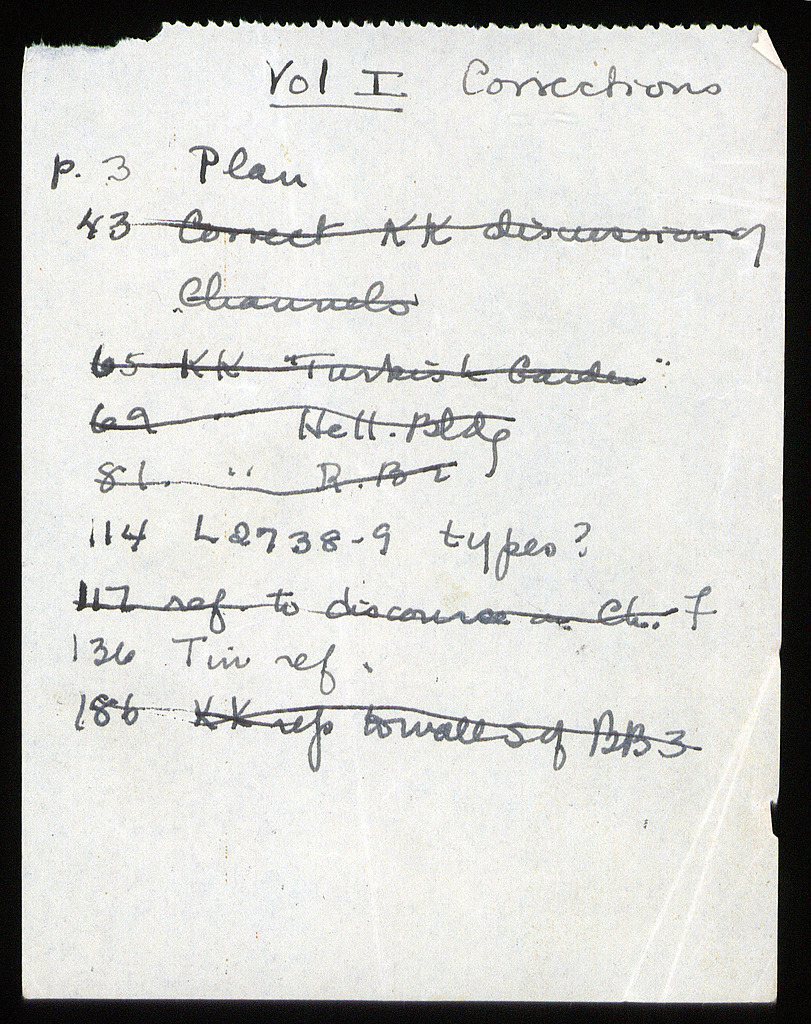 Vol I Corrections
p. 3 Plan
43 Correct KK discussion of
Channels
65 KK "Turkish Garden"
69 Hell. Bldg
81. " R. B
114 L2738-9 types?
117 ref. to discourse Ch. 7
136 Tin ref.
186 KK refs to walls of BB3